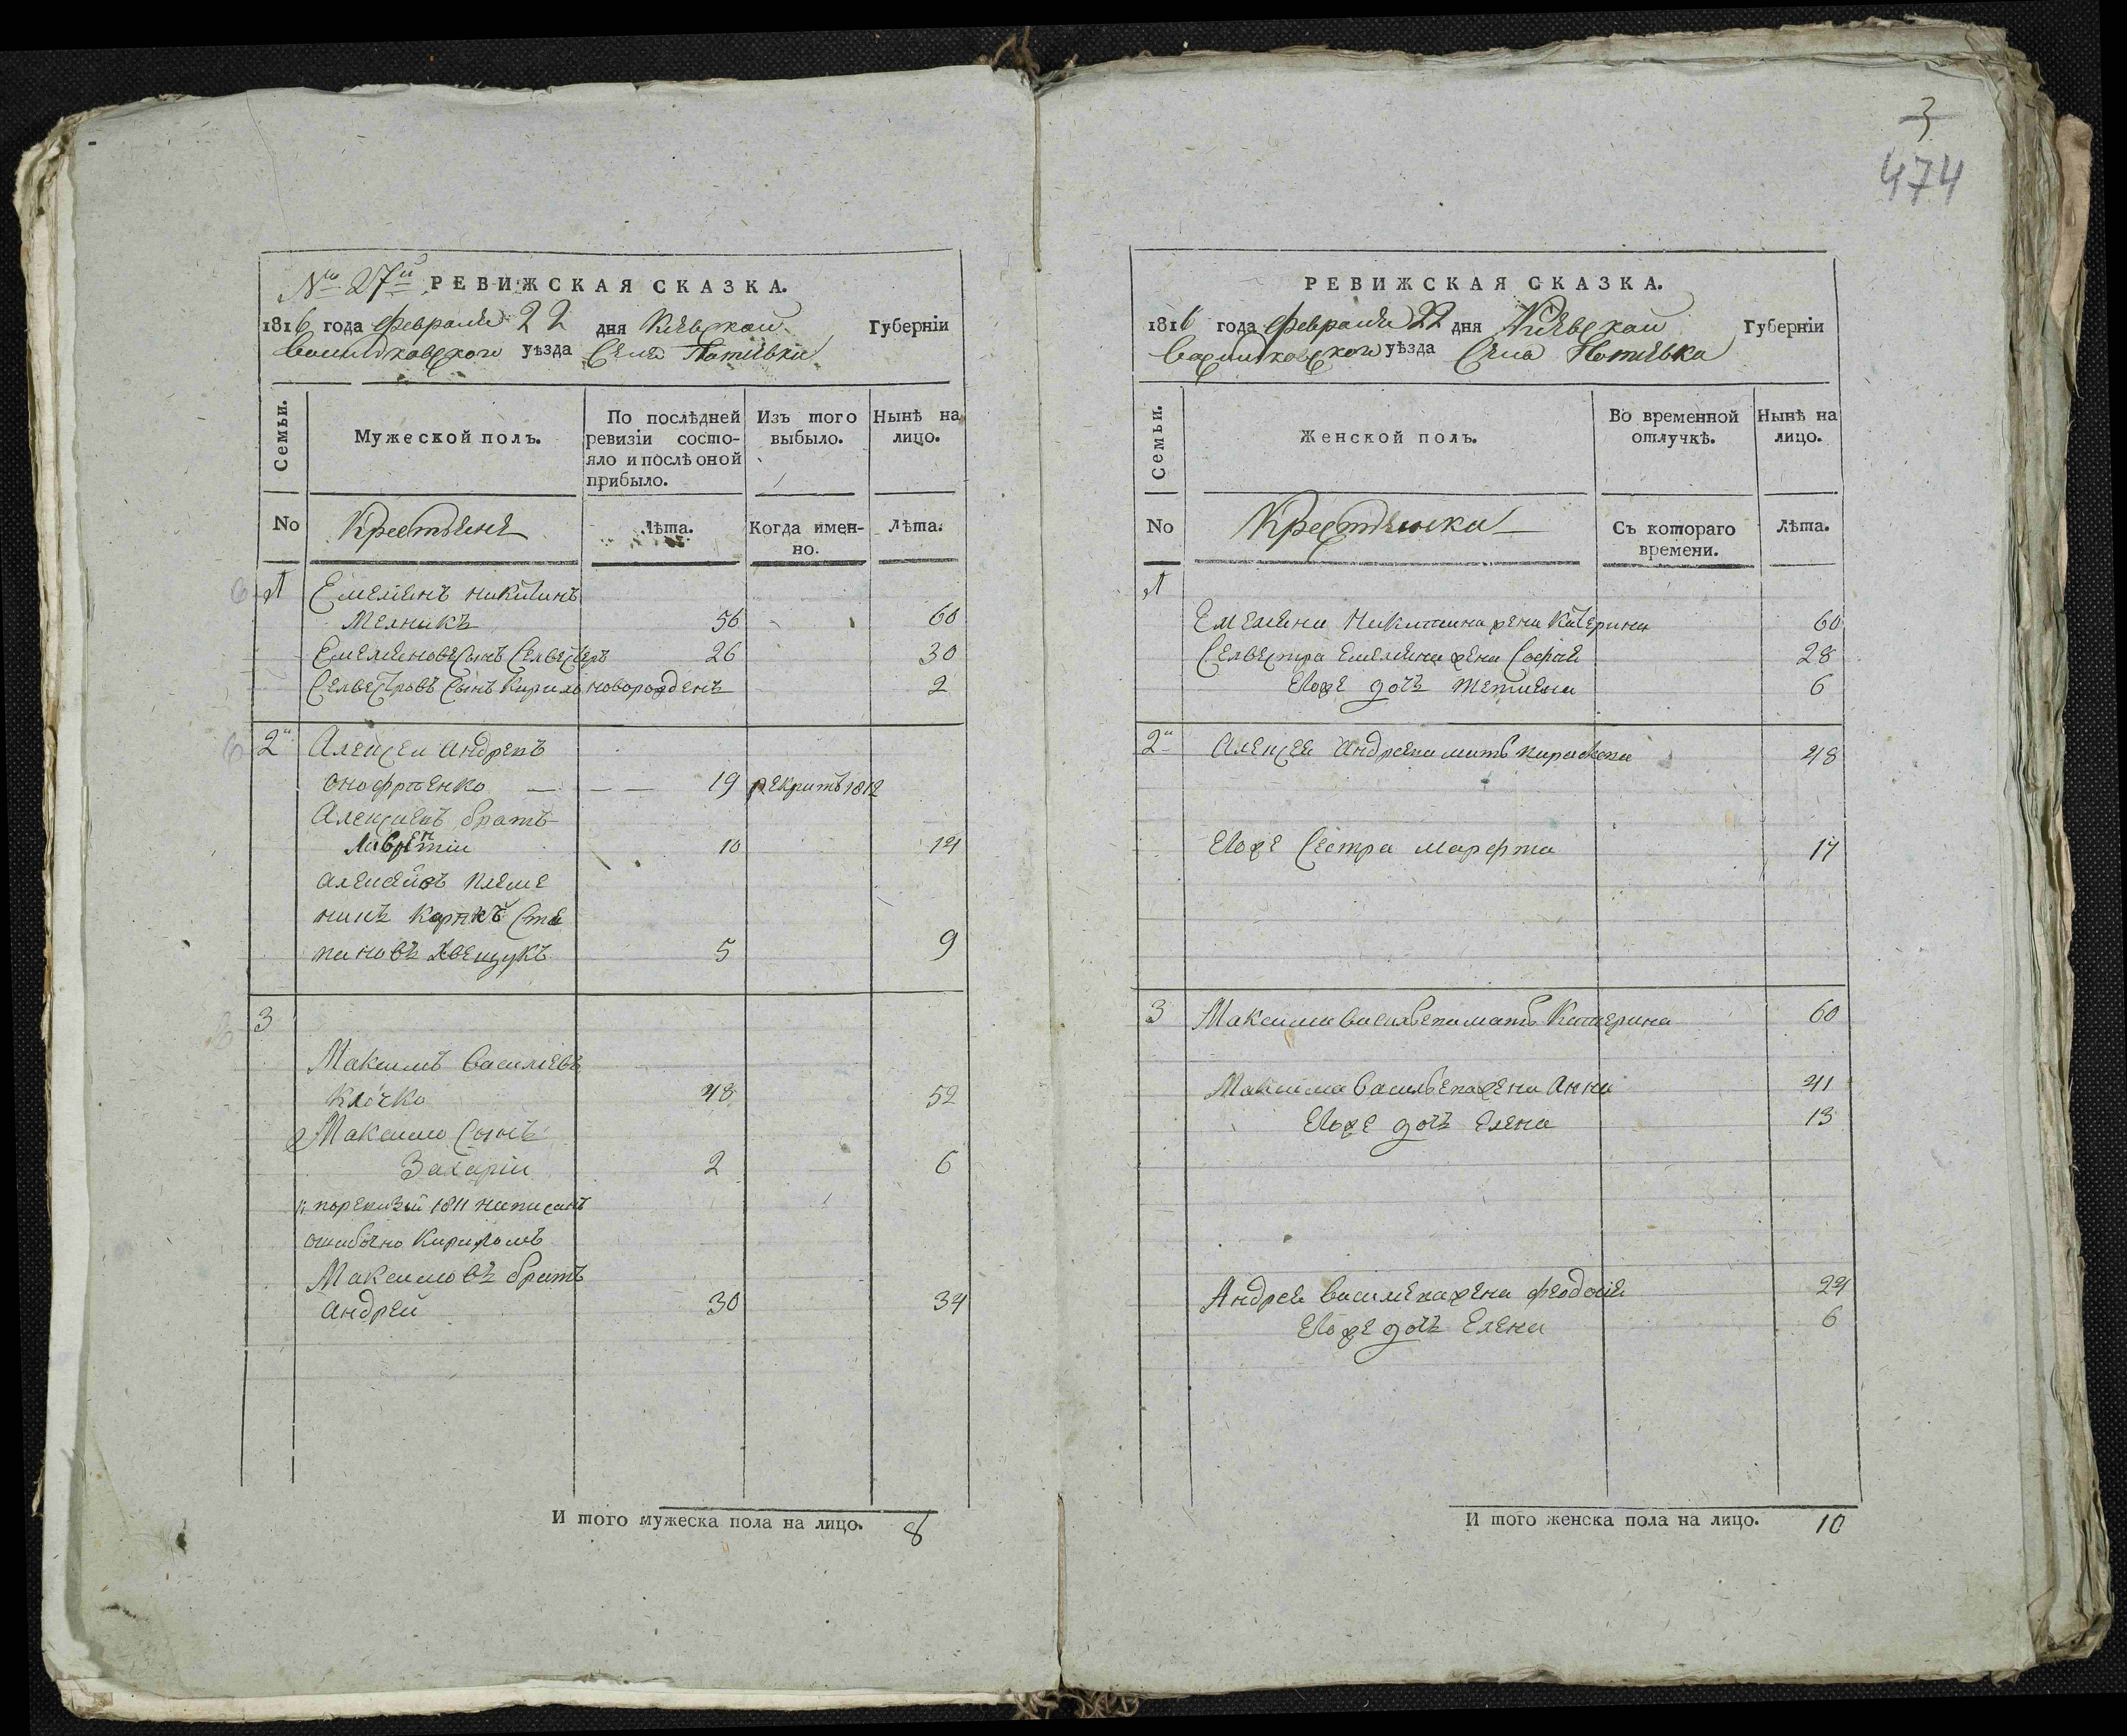 3
474
№ 27й РЕВИЖСКАЯ СКАЗКА.
1816 года февраля 22 дня Киевской Губерніи
Василковского уѣзда Села Потиевки
Семьи.
Мужеской полъ.
По послѣдней ревизіи состояло и послѣ оной прибыло.
Изъ того выбыло.
Нынѣ на лицо.
No Крестьяне Лѣта. Когда именно. Лѣта.
1 Емелянъ Никитинъ
Мелникъ 56 60
Емеляновъ Сынъ Селвестеръ 26 30
Селвестровъ Сынъ Кирило новорожденъ 2
2й Алексеи Андреевъ
Онофрѣенко 19 рекрутъ 1812
Алексѣевъ братъ
Лаврентіи 10 14
Алексеивъ племе
никъ Карпъ Сте
пановъ Ивещукъ 5 9
3
Максимъ Василиевъ
Клочко 48 52
Максимо Сынъ
Захаріи 2 6
поревизіи 1811 написанъ
ошибочно Кириломъ
Максимовъ братъ
Андреи 30 34
И того мужеска пола на лицо. 8
РЕВИЖСКАЯ СКАЗКА.
1816 года февраля 22 дня Киевской Губерніи
Василковского уѣзда Села Потиевка
Семьи.
Женской полъ.
Во временной отлучкѣ.
Нынѣ на лицо.
No Крестянки Съ котораго времени. Лѣта.
1
Емеляна Никитина жена Катерина 60
Селвестра Емеляна жена Софія 28
Егоже дочь Тетиена 6
2й Алексея Андреева мать Параскева 48
Егоже Сестра Марфта 17
3 Максима Васильева мать Катерина 60
Максима Васильева жена Анна 41
Егоже дочь Елена 13
Андрея Василева жена Феодосія 24
Егоже дочь Елена 6
И того женска пола на лицо. 10